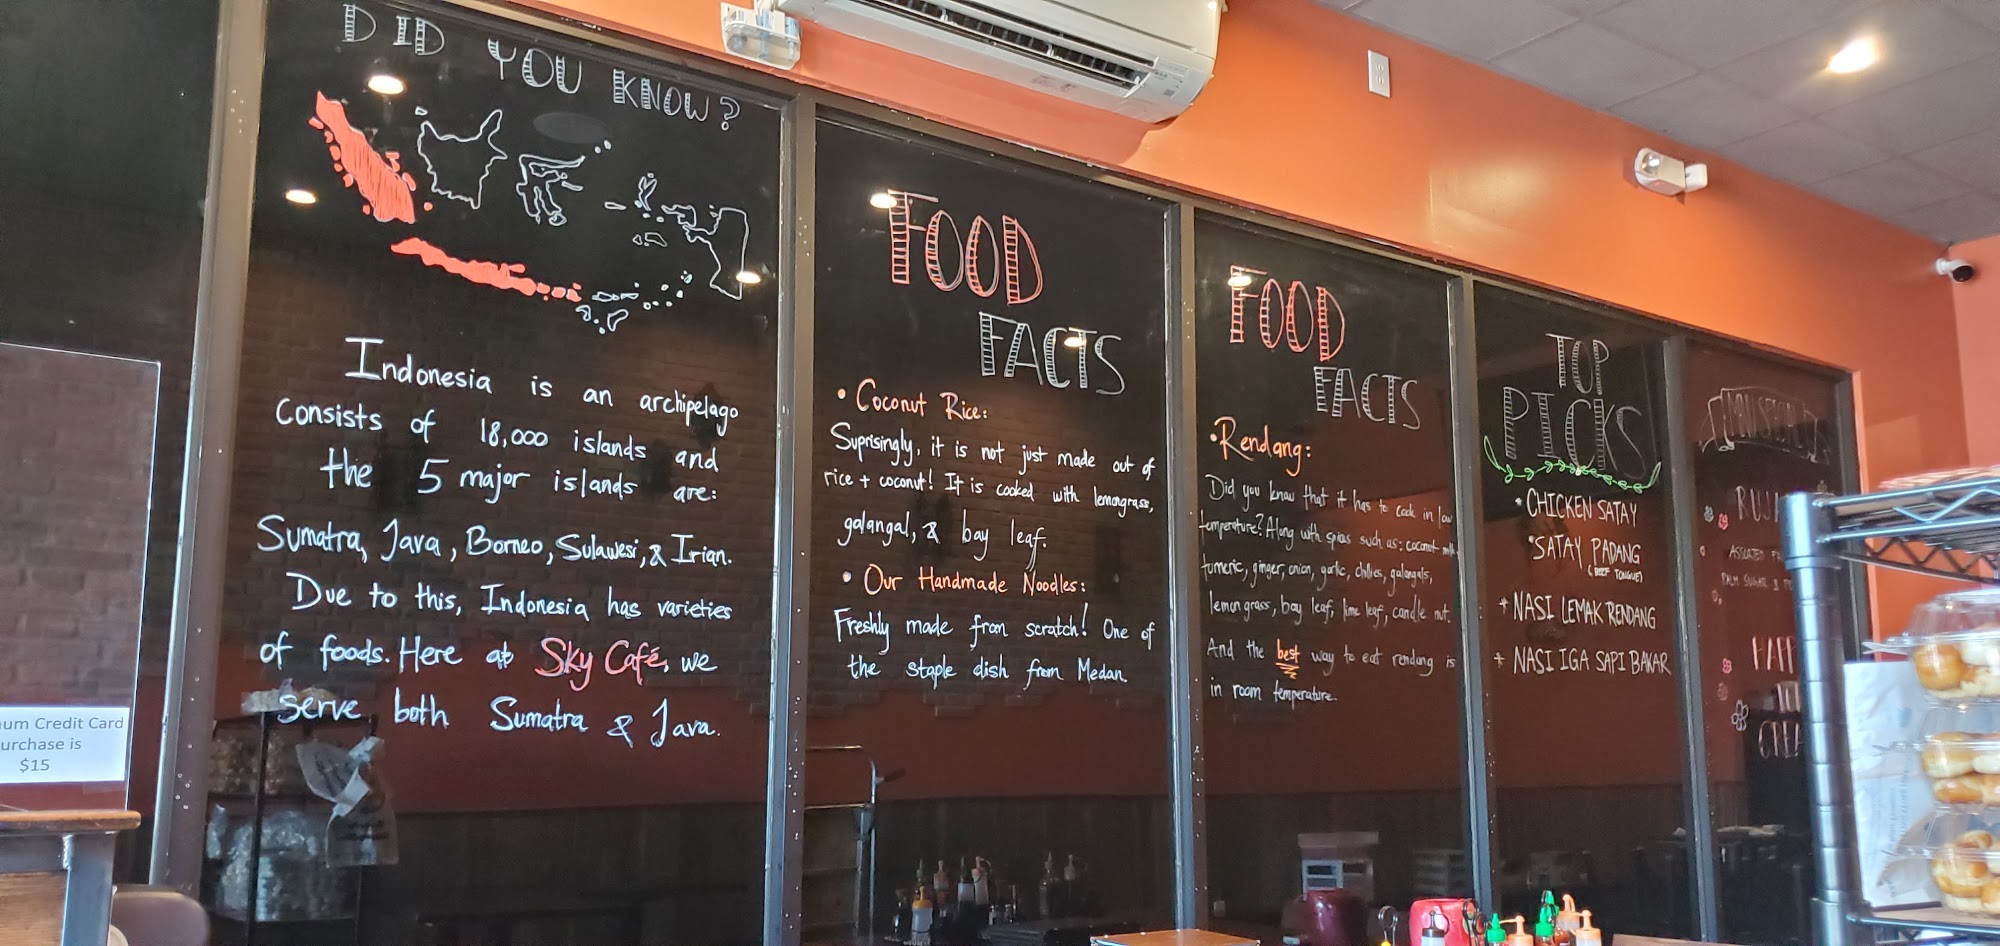 DID YOU KNOW?
Indonesia is an archipelago
consists of 18,000 islands and
the 5 major islands are:
Sumatra, Java, Borneo, Sulawesi, & Irian.
Due to this, Indonesia has varieties
of foods. Here at Sky Café, we
serve both Sumatra & Java.
Credit Card
urchase is
$15
FOOD
FACTS
• Coconut Rice:
Suprisingly, it is not just made out of
rice + coconut! It is cooked with lemongrass,
galangal, & bay leaf.
• Our Handmade Noodles:
Freshly made from scratch! One of
the staple dish from Medan.
FOOD
FACTS
• Rendang:
Did you know that it has to cook in low
temperature? Along with spices such us: coconut milk
tumeric, ginger, onion, garlic, chilies, galangals,
lemon grass, bay leaf, lime leaf, candle nut.
And the best way to eat rendang is
in room temperature.
TOP
PICKS
* CHICKEN SATAY
* SATAY PADANG
(BEEF TONGUE)
* NASI LEMAK RENDANG
* NASI IGA SAPI BAKAR
ASSORTED
PALM SUGAR &